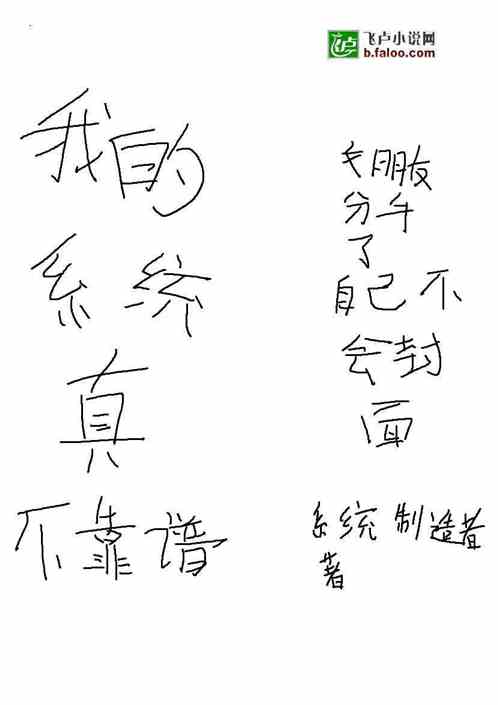 飞卢小说网
b.faloo.com
飞卢
我的
系统
真
不靠谱
女朋友
分手
了
自己不
会封
面
系统制造者
著